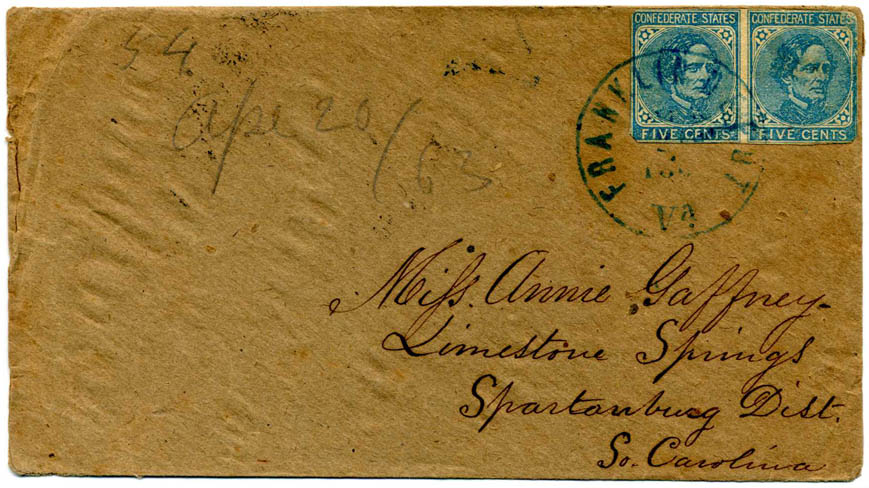 CONFEDERATE STATES CONFEDERATE STATES
FIVE CENTS FIVE CENTS
FRANKLIN
Va
54
Apl 20/63
Miss. Annie Gaffney
Limestone Springs
Spartanburg Dist.
So. Carolina